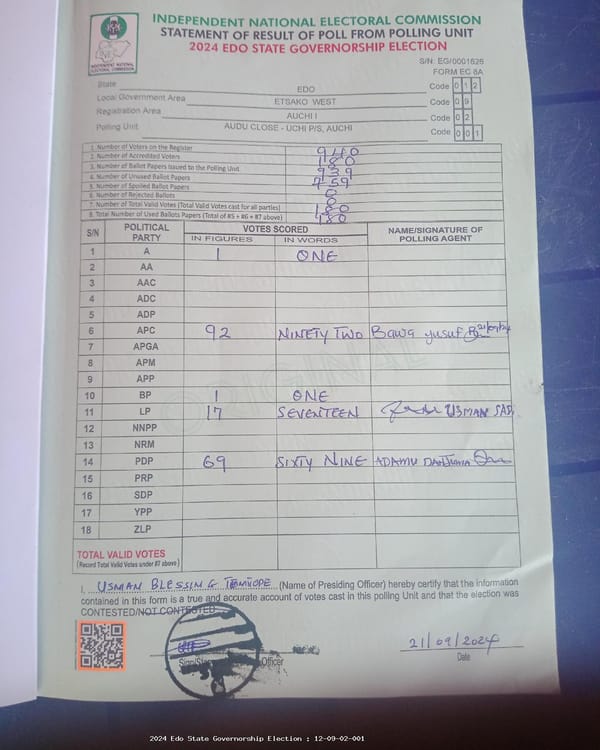 INDEPENDENT NATIONAL ELECTORAL COMMISSION
STATEMENT OF RESULT OF POLL FROM POLLING UNIT
2024 EDO STATE GOVERNORSHIP ELECTION
INDEPENDENT NATIONAL ELECTORAL COMMISSION
S/N: EG/0001626
FORM EC 8A
State EDO Code 0 1 2
Local Government Area ETSAKO WEST Code 0 9
Registration Area AUCHI I Code 0 2
Polling Unit AUDU CLOSE - UCHI P/S, AUCHI Code 0 0 1
1. Number of Voters on the Register 940
2. Number of Accredited Voters 180
3. Number of Ballot Papers Issued to the Polling Unit 939
4. Number of Unused Ballot Papers 759
5. Number of Spoiled Ballot Papers 0
6. Number of Rejected Ballots 0
7. Number of Total Valid Votes (Total Valid Votes cast for all parties) 180
8. Total Number of Used Ballots Papers (Total of #5 + #6 + #7 above) 180
S/N POLITICAL PARTY VOTES SCORED NAME/SIGNATURE OF POLLING AGENT
IN FIGURES IN WORDS
1 A 1 ONE
2 AA
3 AAC
4 ADC
5 ADP
6 APC 92 NINETY TWO Bawa yusuf 21/09/24
7 APGA
8 APM
9 APP
10 BP 1 ONE
11 LP 17 SEVENTEEN USMAN
12 NNPP
13 NRM
14 PDP 69 SIXTY NINE ADAMU
15 PRP
16 SDP
17 YPP
18 ZLP
ORIGINAL
TOTAL VALID VOTES
(Record Total Valid Votes under #7 above)
I, USMAN BLESSING TEMITOPE (Name of Presiding Officer) hereby certify that the information
contained in this form is a true and accurate account of votes cast in this polling Unit and that the election was
CONTESTED/NOT CONTESTED
21/09/2024
Officer Date
2024 Edo State Governorship Election : 12-09-02-001